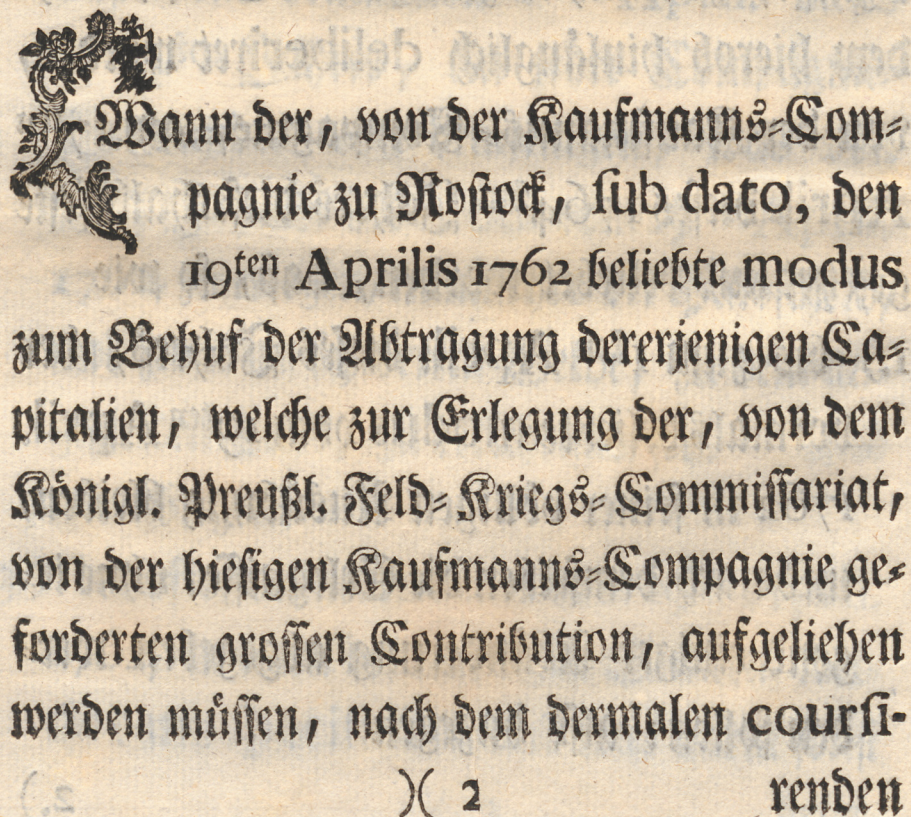 Wann der, von der Kaufmanns-Com-
pagnie zu Rostock, sub dato, den
19ten Aprilis 1762 beliebte modus
zum Behuf der Abtragung dererjenigen Ca-
pitalien, welche zur Erlegung der, von dem
Königl. Preußl. Feld-Kriegs-Commissariat,
von der hiesigen Kaufmanns-Compagnie ge-
forderten grossen Contribution, aufgeliehen
werden müssen, nach dem dermalen coursi-
)( 2 renden